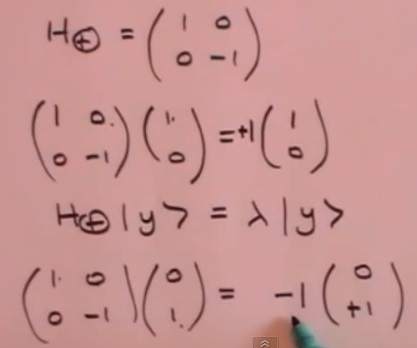 H⊕ = (1 0
0 -1)
(1 0. (1. = +1 (1
0 -1) 0) 0)
H⊕ |y> = λ |y>
(1. 0 (0 = -1 (0
0 -1) 1.) +1)